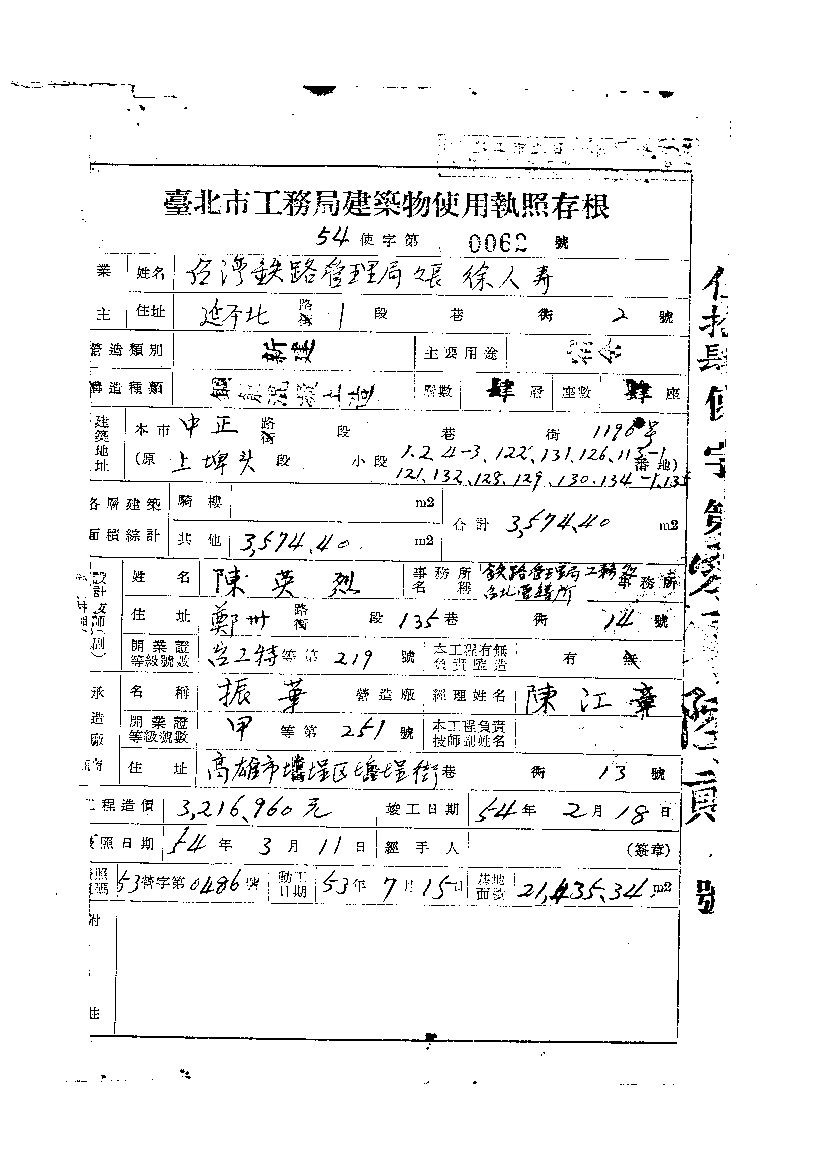 臺北市工務局建築物使用執照存根
54 使字第 0062 號
業 姓名 台灣鉄路管理局 長 徐人寿
主 住址 延平北 路街 1 段 巷 衖 2 號
營造類別 新建 主要用途 宿舍
構造種類 層數 肆 層 座數 肆 座
建築地址 本市 中正 路街 段 巷 衖 號
(原 上埤头 段 小段 1.2.4-3、122、131、126、115-1 番地)
121、132、128、129、130、134-1、135
各層建築 騎樓 m2 合計 3,574.40 m2
面積綜計 其他 3,574.40 m2
設計技師(副)
姓名 陳英烈 事務所名稱 鉄路管理局工務処 事務所
台北電 所
住址 鄭州 路街 段 135 巷 衖 14 號
開業證等級號數 台工特 等第 219 號 本工程有無負責監造 有 無
承造廠商
名稱 振華 營造廠 經理姓名 陳江章
開業證等級號數 甲 等第 251 號 本工程負責技師副姓名
住址 高雄市塩埕区塩埕街 巷 衖 13 號
工程造價 3,216,960元 竣工日期 54 年 2 月 18 日
發照日期 54 年 3 月 11 日 經手人 (簽章)
號碼 53 營字第 0486 號 動工日期 53 年 7 月 15 日 基地面積 21,435.34 m2
附
註
伍拾肆使字第零零陸貳號